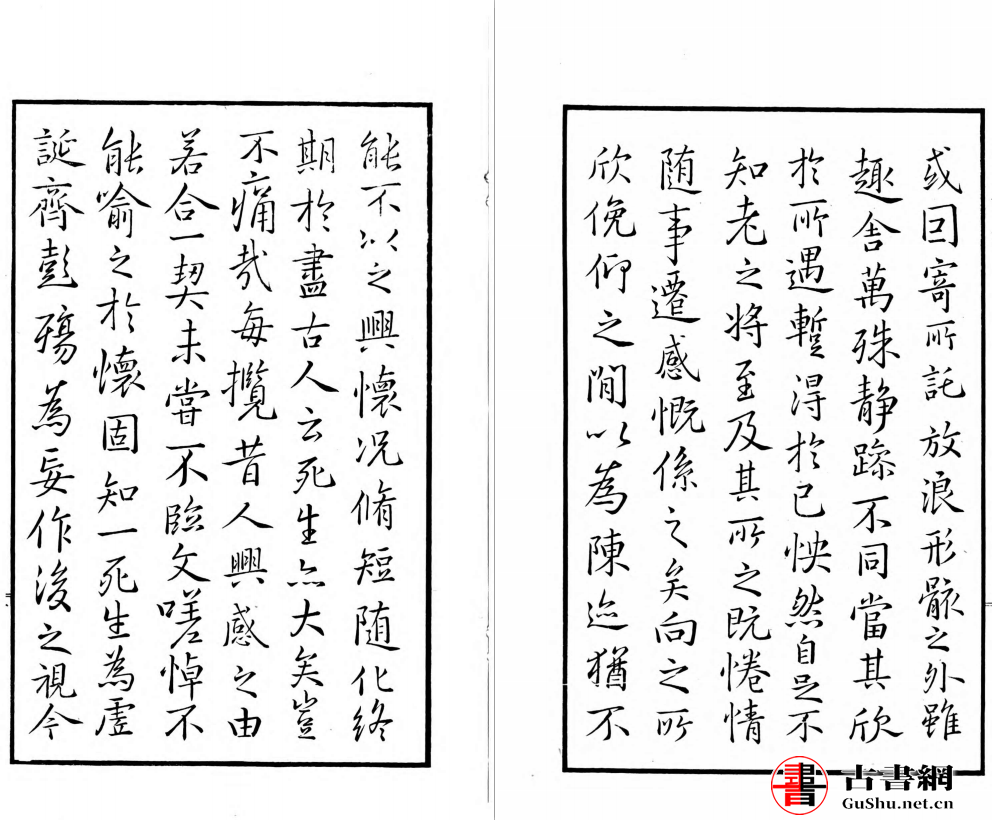 或因寄所託放浪形骸之外雖
趣舍萬殊静躁不同當其欣
於所遇蹔得於己怏然自足不
知老之將至及其所之既惓情
随事遷感慨係之矣向之所
欣俛仰之閒以為陳迹猶不
能不以之興懷况脩短随化終
期於盡古人云死生亦大矣豈
不痛哉每攬昔人興感之由
若合一契未嘗不臨文嗟悼不
能喻之於懷固知一死生為虛
誕齊彭殤為妄作後之視今
古書網
GuShu.net.cn